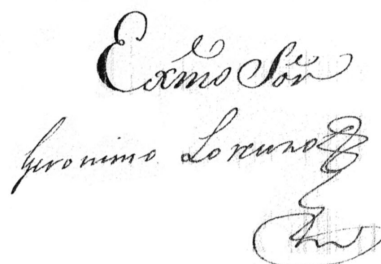 Exmo Sôr
Geronimo Lorenzo